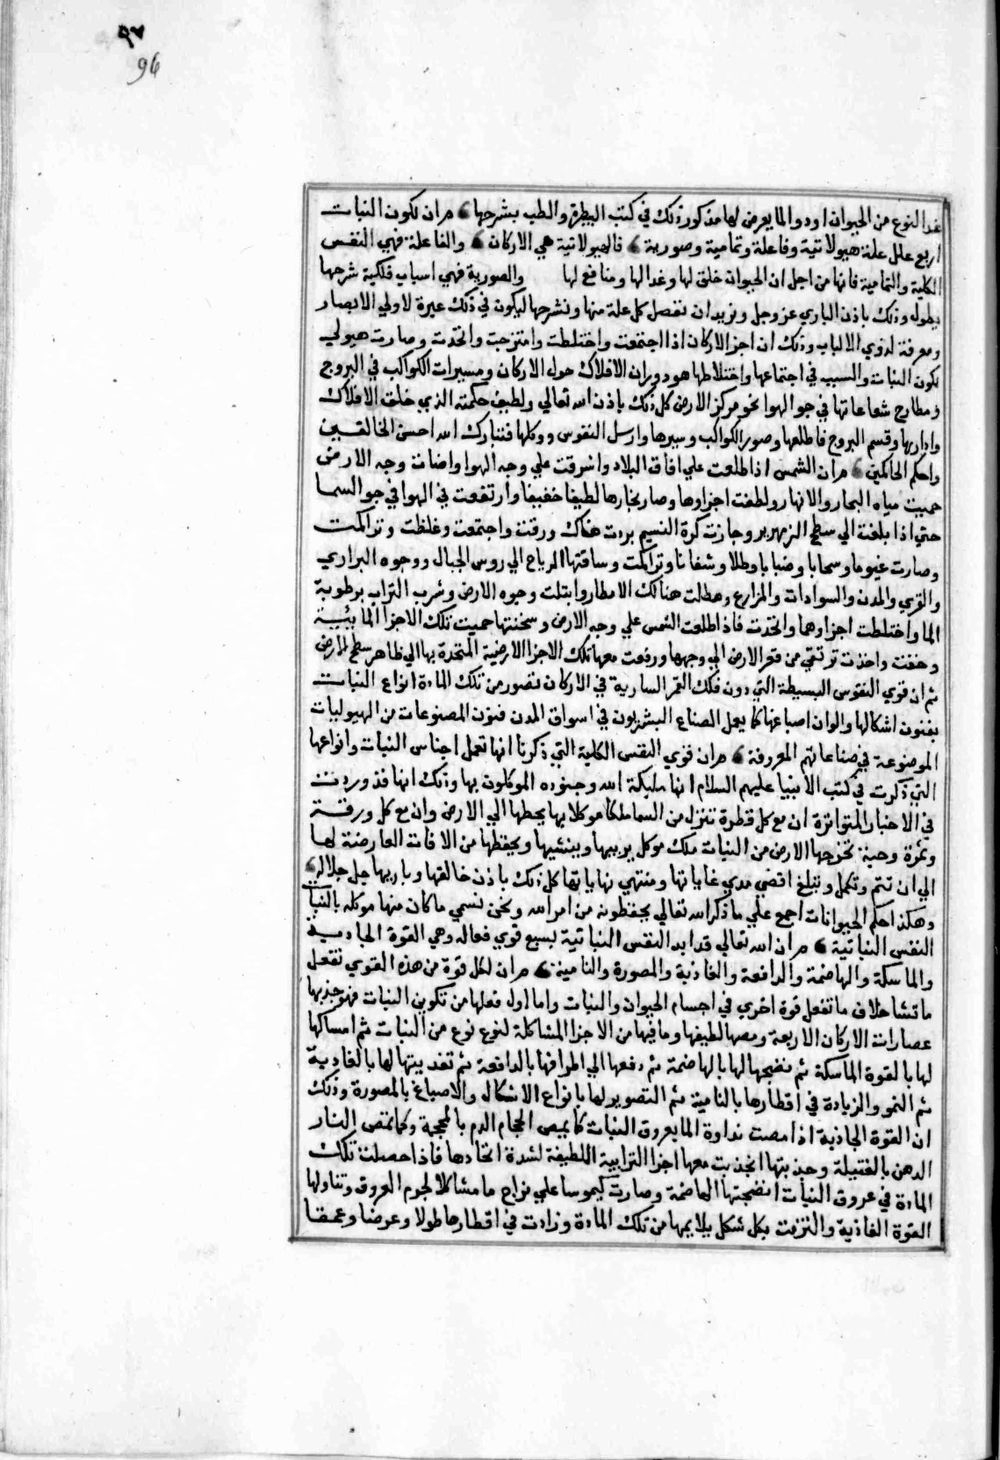 ٩٦
96
غذا النوع من الحيوان او دوا لما يعرض لها مذكور ذلك في كتب البيطرة والطب بشرحها مران لكون النبات
اربع علل علة هيولانية وفاعلة وتمامية وصورية فالهيولانية هي الاركان والفاعلة فهي النفس
الكلية والتمامية فانها من اجل ان الحيوان خلق لها وغذا لها ومنافع لها والصورية فهي اسباب فلكية شرحها
يطول وذلك باذن الباري عز وجل ونريد ان نفصل كل علة منها ونشرحها ليكون في ذلك عبرة لاولي الابصار
ومعرفة لذوي الالباب وذلك ان اجزا الاركان اذا اجتمعت واختلطت وامتزجت واتحدت وصارت هيولي
تكون النبات والسبب في اجتماعها واختلاطها هو دوران الافلاك حول الاركان ومسيرات الكواكب في البروج
ومطارح شعاعاتها في جو الهوا نحو مركز الارض كل ذلك باذن الله تعالي ولطيف حكمته الذي خلق الافلاك
وادارها وقسم البروج فاطلعها وصور الكواكب وسيرها وارسل النفوس ووكلها فتبارك الله احسن الخالقين
واحكم الحاكمين مران الشمس اذا طلعت علي افاق البلاد واشرقت علي وجه الهوا واضات وجه الارض
حميت مياه البحار والانهار ولطفت اجزاوها وصار بخارها لطيفا خفيفا وارتفعت في الهوا في جو السما
حتي اذا بلغت الي سطح الزمهرير وجازت كرة النسيم بردت هناك ورقت واجتمعت وغلظت وتراكمت
وصارت غيوما وسحابا وضبابا وطلا وشفانا وتراكمت وساقتها الرياح الي روس الجبال ووجوه البراري
والقري والمدن والسوادات والمزارع وهطلت هنالك الامطار وابتلت وجوه الارض وشرب التراب برطوبة
الما واختلطت اجزاوهما واتحدت فاذا طلعت الشمس علي وجه الارض وسخنتها حميت تلك الاجزا المايية
وخفت واخذت ترتقي من قعر الارض الي وجهها ورفعت معها تلك الاجزا الارضية المتحدة بها الي ظاهر سطح الارض
ثم ان قوي النفوس البسيطة التي دون فلك القمر السارية في الاركان تصور من تلك المادة انواع النبات
بفنون اشكالها والوان اصباغها كما يعمل الصناع البشريون في اسواق المدن فنون المصنوعات من الهيوليات
الموضوعة في صناعاتهم المعروفة مران قوي النفس الكلية التي ذكرنا انها تعمل اجناس النبات وانواعها
التي ذكرت في كتب الانبيا عليهم السلام انها مليكة الله وجنوده الموكلون بها وذلك انها قد وردت
في الاخبار المتواترة ان مع كل قطرة تنزل من السما ملكا موكلا بها يحطها الي الارض وان مع كل ورقة
وثمرة وحبة تخرجها الارض من النبات ملك موكل يربيها وينشيها ويحفظها من الافات العارضة لها
الي ان تتم وتكمل وتبلغ اقصي مدي غاياتها ومنتهي نهاياتها كل ذلك باذن خالقها وباريها جل جلاله
وهكذا حكم الحيوانات اجمع علي ما ذكر الله تعالي يحفظونه من امر الله ونحن نسمي ما كان منها موكله بالنبات
النفس النباتية مران الله تعالي قد ايد النفس النباتية بسبع قوي فعاله وهي القوة الجاذبية
والماسكة والهاضمة والدافعة والغاذية والمصورة والنامية مران لكل قوة من هذه القوي تفعل
ما تشا خلاف ما تفعل قوة اخري في اجسام الحيوان والنبات واما اول فعلها من تكوين النبات فهو جذبها
عصارات الاركان الاربعة ومصها لطيفها وما فيها من الاجزا المشاكلة لنوع نوع من النبات ثم امساكها
لها بالقوة الماسكة ثم نضجها لها بالهاضمة ثم دفعها الي اطرافها بالدافعة ثم تغذيتها لها بالغاذية
ثم النمو والزيادة في اقطارها بالنامية ثم التصوير لها بانواع الاشكال والاصباغ بالمصورة وذلك
ان القوة الجاذبة اذا مصت نداوة الما بعروق النبات كما يمص الحجام الدم بالمحجمة وكما تمص النار
الدهن بالفتيلة وجذبتها انجذبت معها اجزا الترابية اللطيفة لشدة اتحادها فاذا حصلت تلك
المادة في عروق النبات انضجتها الهاضمة وصارت كيموسا علي مزاج ما مشاكلا لجرم العروق وتناولها
القوة الغاذية والتزقت بكل شكل يلايمها من تلك المادة وزادت في اقطارها طولا وعرضا وعمقا